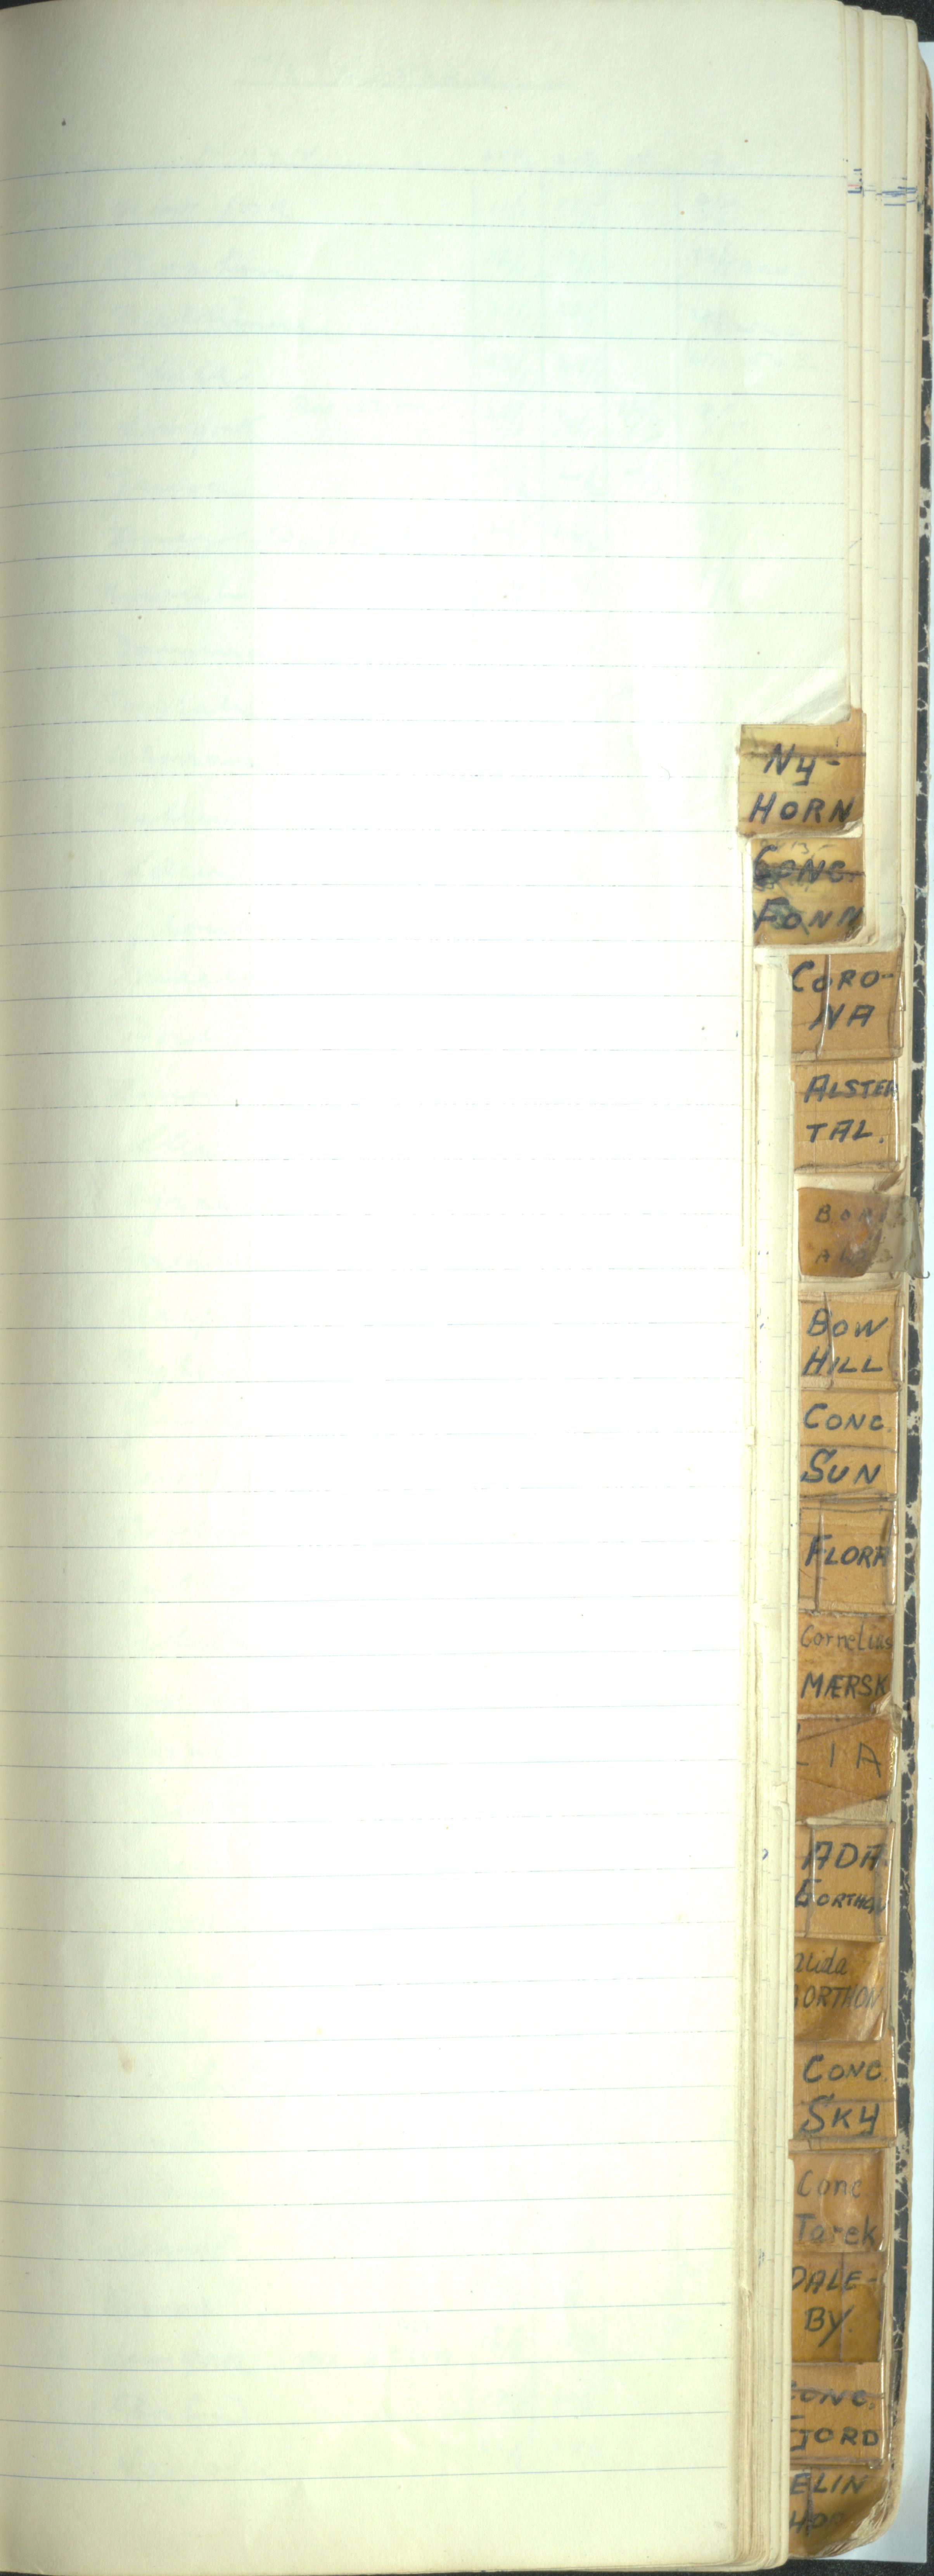 NY-
HORN
CONC.
FONN
CORO-
NA
ALSTER
TAL.
BOW
HILL
CONC.
SUN
FLORA
Cornelius
MÆRSK
LIA
ADA
GORTHON
alida
GORTHON
CONC.
SKY
Conc
Tarek
DALE-
BY.
CONC.
FJORD
ELIN